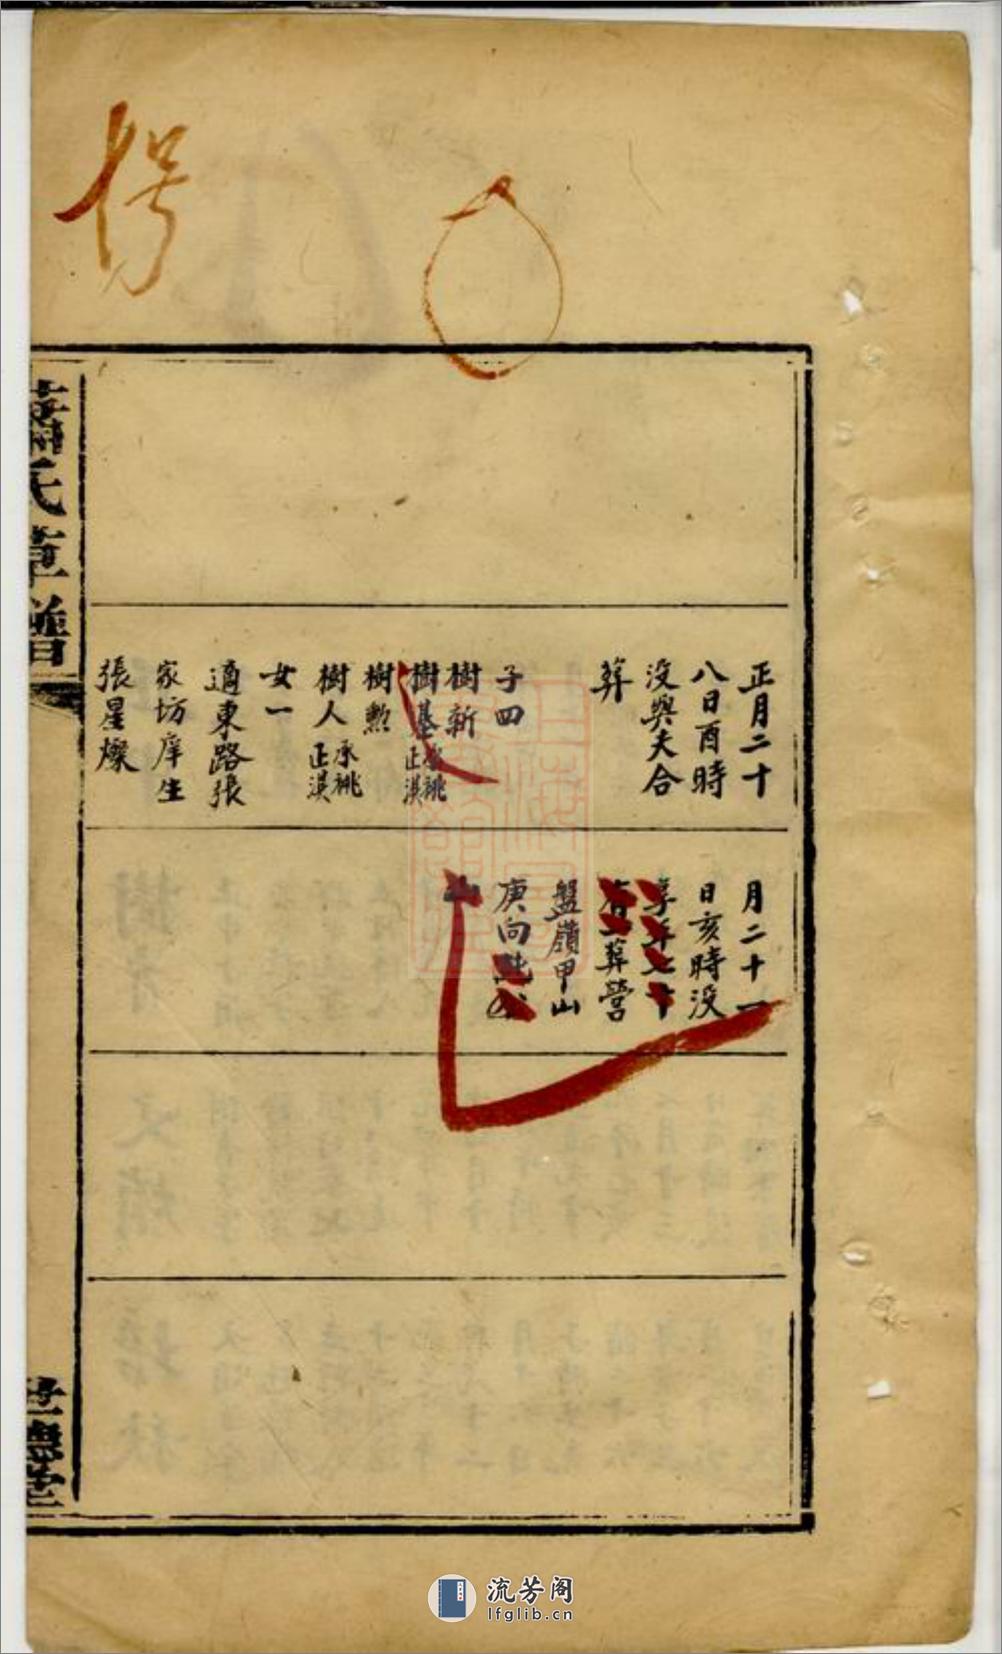 正月二十
八日酉時
沒與夫合
葬
子四
樹新
樹基承祧正漢
樹勲
樹人承祧正漢
女一
適東路張
家坊庠生
張星燦
月二十一
日亥時没
享年七十
有一葬營
盤嶺甲山
庚向
山
蕭氏草譜
世德堂
流芳阁
lfglib.cn